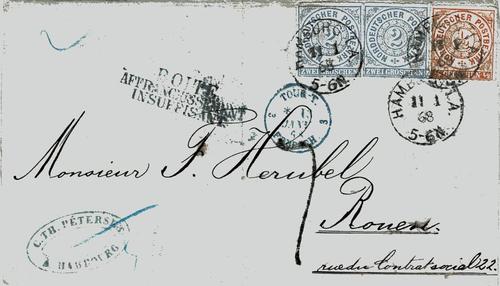 NORDDEUTSCHER POSTBEZIRK
2
ZWEI GROSCHEN
NORDDEUTSCHER POSTBEZIRK
2
ZWEI GROSCHEN
HAMBURG I.A.
11 1
68
5-6N.
HAMBURG I.A.
11 1
68
5-6N.
BOITE
AFFRANCHISSEMENT
INSUFFISANT
TOUR-T.
3
3
Monsieur F. Herubel
Rouen.
rue du Contrat social 22.
C. TH. PETERSEN
HAMBOURG